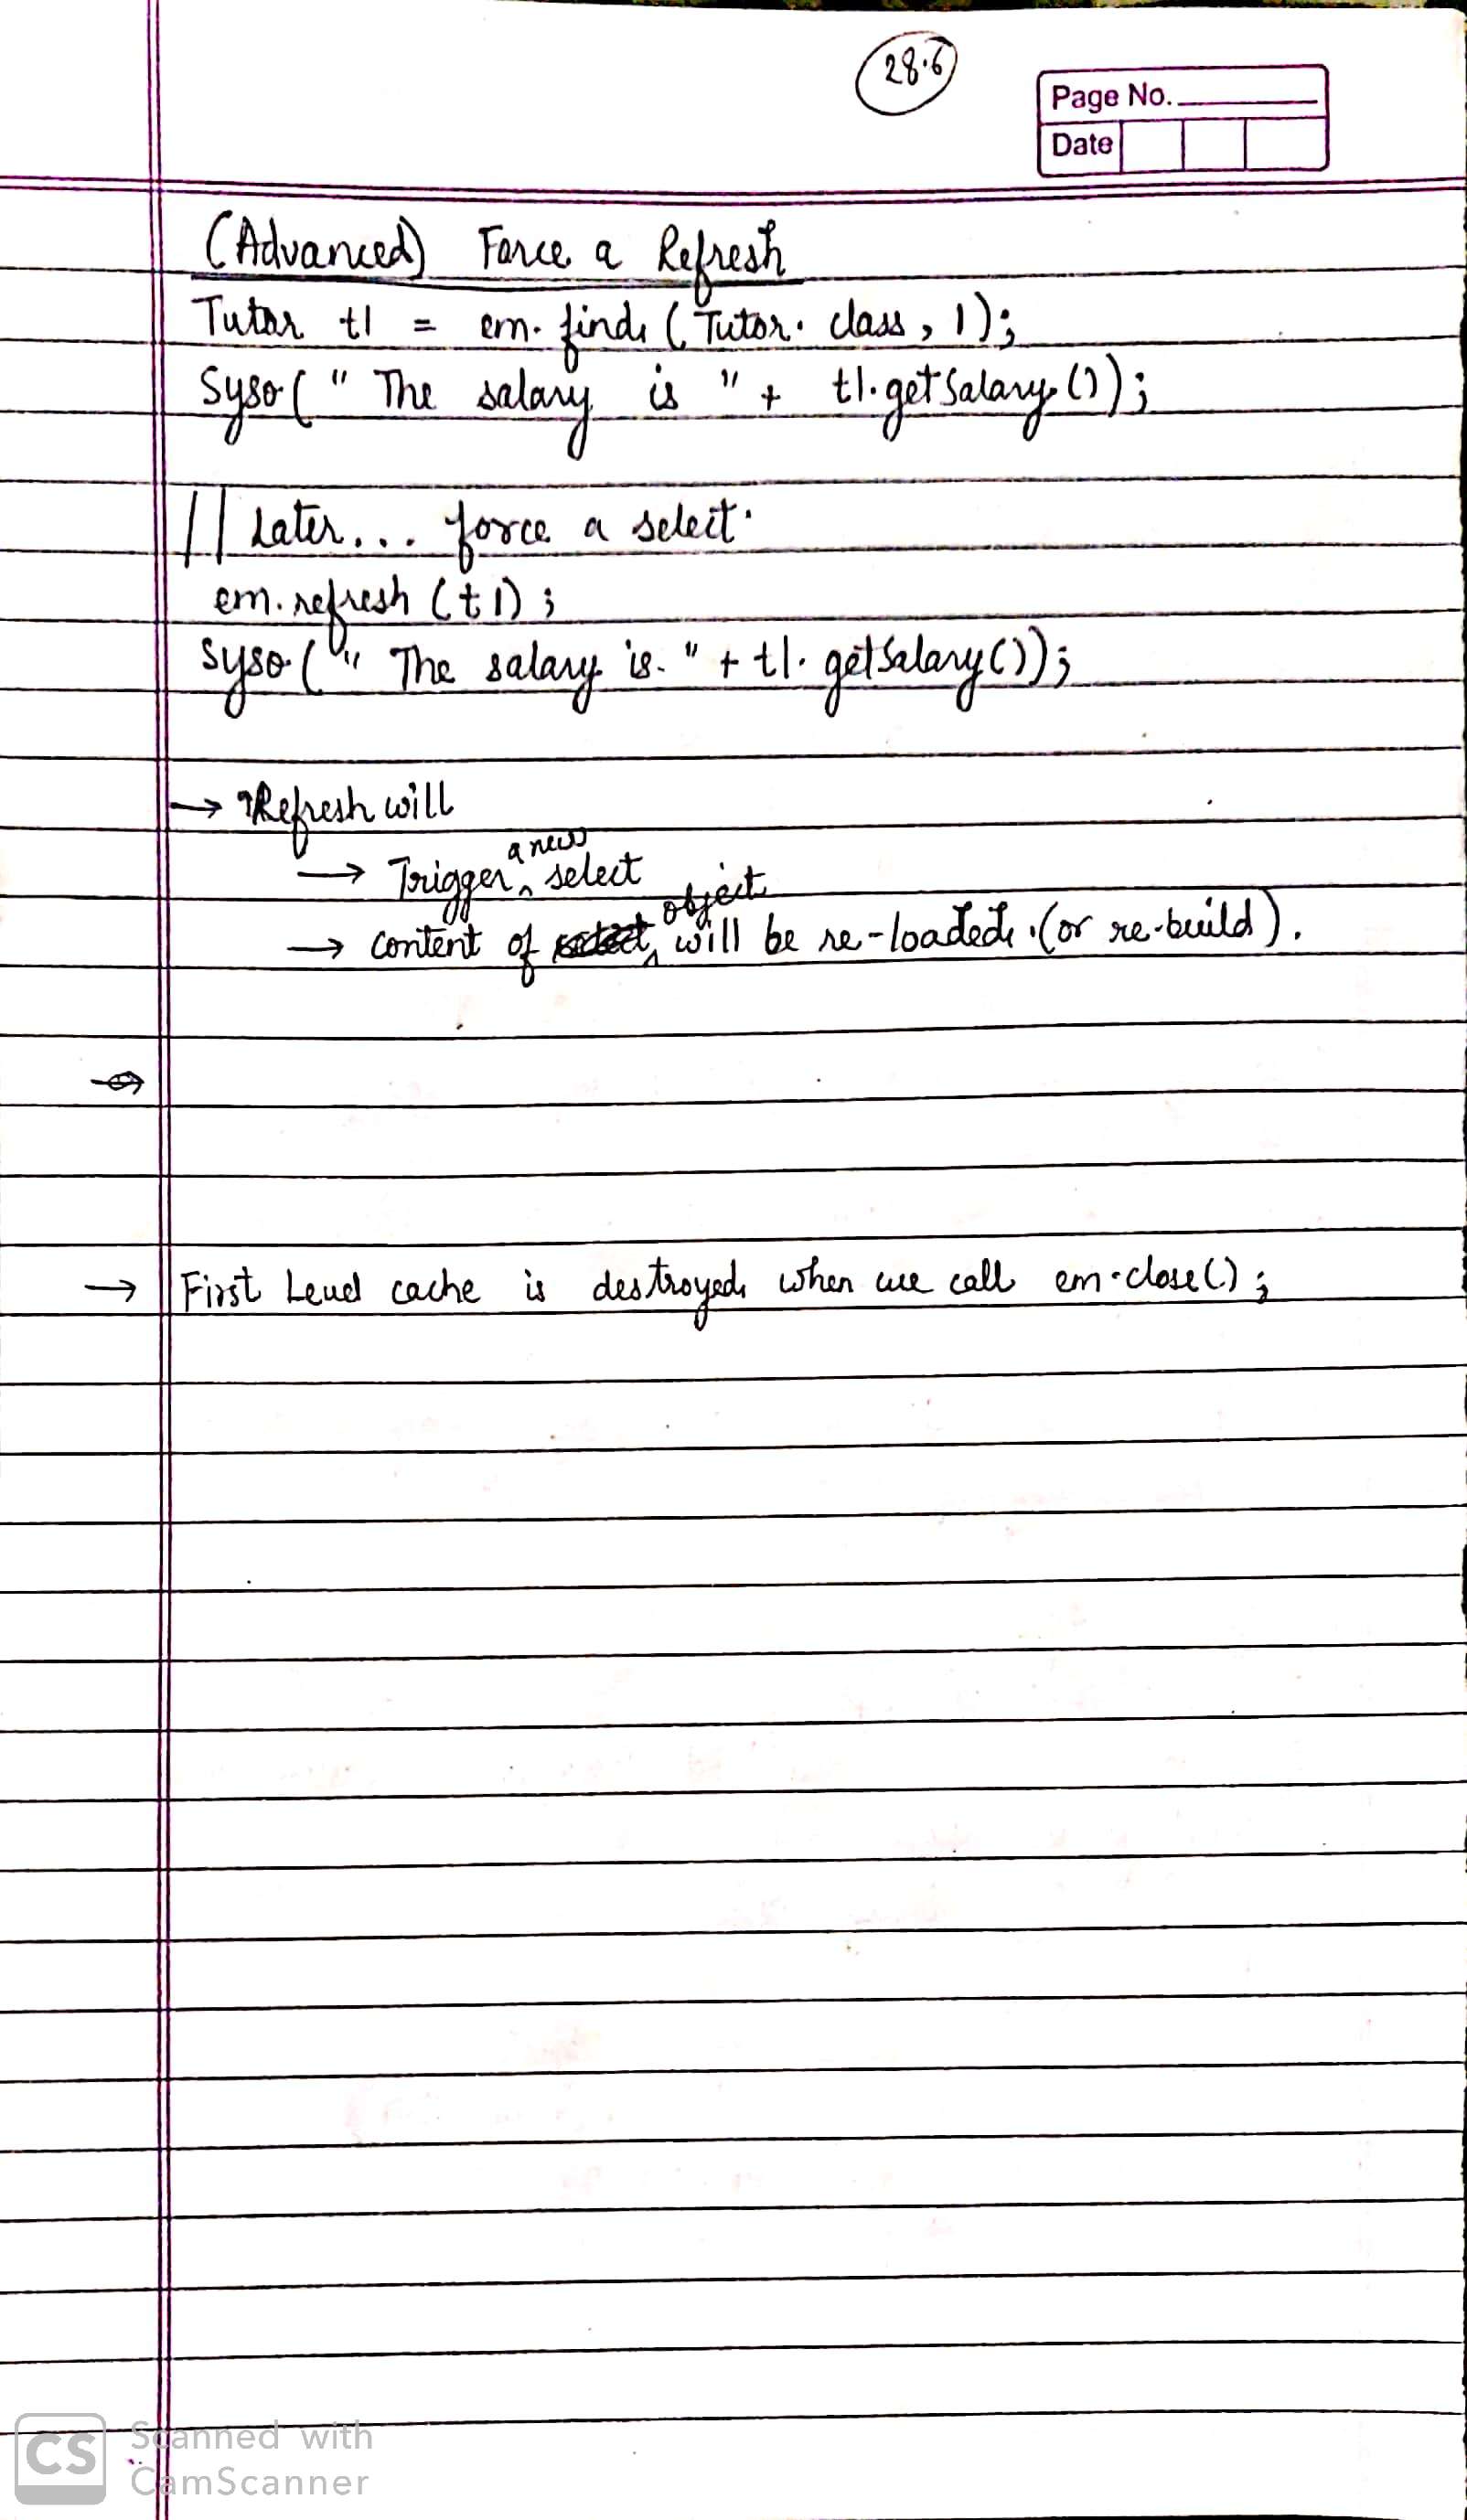 28.6
Page No.
Date
(Advanced) Force a Refresh
Tutor t1 = em.find (Tutor.class, 1);
Syso(" The salary is " + t1.getSalary());
// Later... force a select.
em.refresh (t1);
Syso(" The salary is " + t1.getSalary());
→ Refresh will
→ Trigger a new select
→ content of object will be re-loaded. (or re-build).
→
→ First Level cache is destroyed when we call em.close();
CS Scanned with
CamScanner